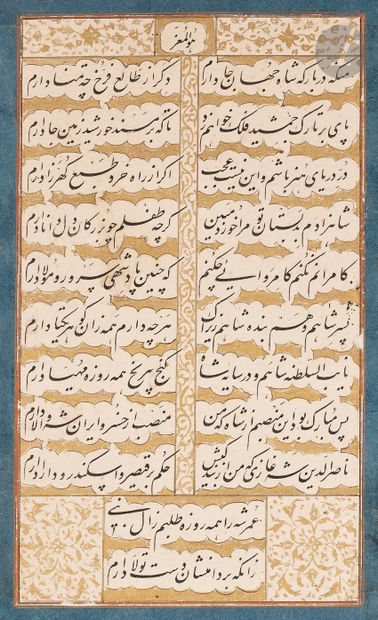 هوالمعز
منکه در بارگه شاه جهان جا دارم دگر از طالع فرخ چه تمنا دارم
پای بر تارک جمشید فلک خواهم زد تا که بر مسند خورشید زمین جا دارم
در دریای هنر باشم و این نیست عجب اگر از راه خرد طبع گهرزا دارم
شاهزادم بدبستان تو مرا خورد مبین گرچه طفلم چو بزرگان دل دانا دارم
کامرانم نکنم کامروائی چکنم که چنین پادشهی سرور و مولا دارم
پسر شاهم و هم بنده شاهم زیراک هرچه دارم همه زان یکتا دارم
نایب السلطنه شاهم و در سایه شاه گنج بی رنج همه روزه مهیا دارم
بس مبارک بود این منصبم از شاه که من منصب از خسرو ایران شه والا دارم
ناصرالدین شه غازی که من از بندگیش حکم بر قیصر و اسکندر و دارا دارم
عمر شه را همه روزه طلبم زال نبی
زانکه بر دامنشان دست تولا دارم